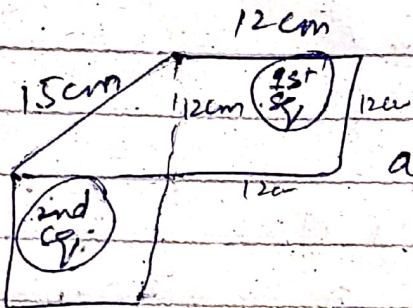 12cm
15cm
12cm
1st
Sq.
12cm
12cm
a
2nd
Sq.